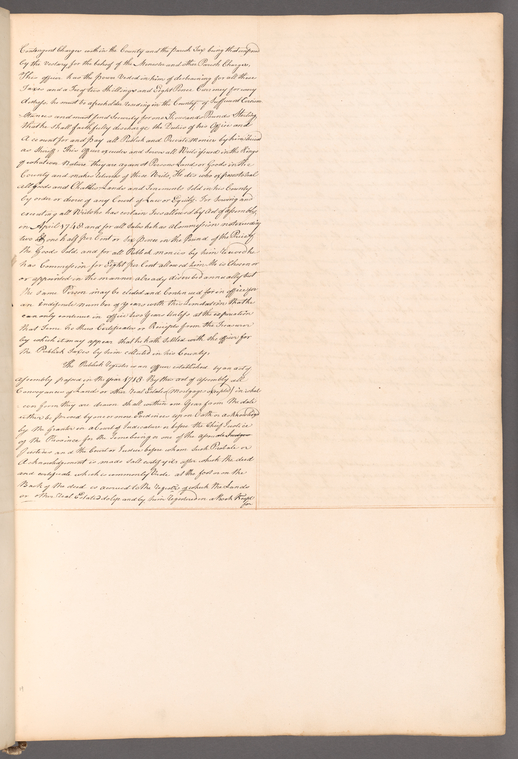 Contingent Charges within the County and the Parish Tax being that raised
by the Vestry for the behoof of the Minister and other Parish Charges.
This officer has the power Vested in him of distraining for all these
Taxes and a Fee of two Shillings and Eight Pence Currency for every
distress he must be a freeholder residing in the County of Sufficient Circum
stances and must find Security for one Thousand Pounds Sterling
that he shall faithfully discharge the Duties of his Office and
Account for and pay all Publick and Private Monies by him
as Sheriff. This officer and serves all Writs issued in the Kings
of whatsoever Nature they are against Persons Lands or Goods in the
County and makes returns of these Writs, He also
all goods and Chattles Lands and Tenements sold in his County
by order or decree of any Court of Law or Equity. For Serving and
executing all Writs he has certain Fees allowed by Act of Assembly,
on April 1748 and for all Sales he has a Commission
two & one half per Cent or Six Pence in the Pound of the Price of
the Goods Sold, and for all Publick Monies by him
has Commission for Eight per Cent allowed him. He is Chosen or
or appointed in the manner already directed annually but
the same Person may be elected and Continued for in office for
an indefinite number of years with this Limitation that he
can only continue in office two Years Unless at the expiration
that Term he shews Certificates or Receipts from the Treasurer
by which it may appear that he hath Settled with the office for
the Publick Taxes by him collected in his County.
The Publick Register is an office established by an act of
Assembly passed in the Year 1715 By this act of Assembly all
Conveyances of Lands or other real Estates (Mortgages Excepted) in what
ever form they are drawn shall within one Year from the date
either be proved by one or more Evidences upon Oath or Acknowledged
by the Grantor in a Court of Judicature or before the Chief Justice
of the Province for the Time being or one of the Associate Judges
Justices and the Court or Justice before whom such Probate or
Acknowledgement is made Shall certify it after which the deed
and certificate which is commonly Made at the foot or on the
Back of the deed is carried to the Register of which the Lands
or other Real Estates do lye and by him Registered in a Book Kept
for